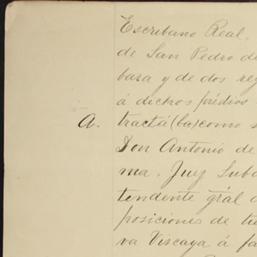 Escribano Real,
de San Pedro de
bara y de dos reg
á dichos prédios
A. tractá (ba) como s
Don Antonio de
ma. Juy Sub
tendente grál d
posiciones de tie
va Viscaya á fa